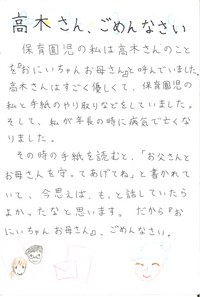 高木さん、ごめんなさい
保育園児の私は高木さんのこと
を『おにいちゃんお母さん』と呼んでいました。
高木さんはすごく優しくて、保育園児の
私と手紙のやり取りなどをしていました。
そして、私が年長の時に病気で亡くな
りました。
その時の手紙を読むと、「お父さんと
お母さんを守ってあげてね」と書かれて
いて、今思えば、もっと話していたら
よかったなと思います。だから『お
にいちゃんお母さん』、ごめんなさい。